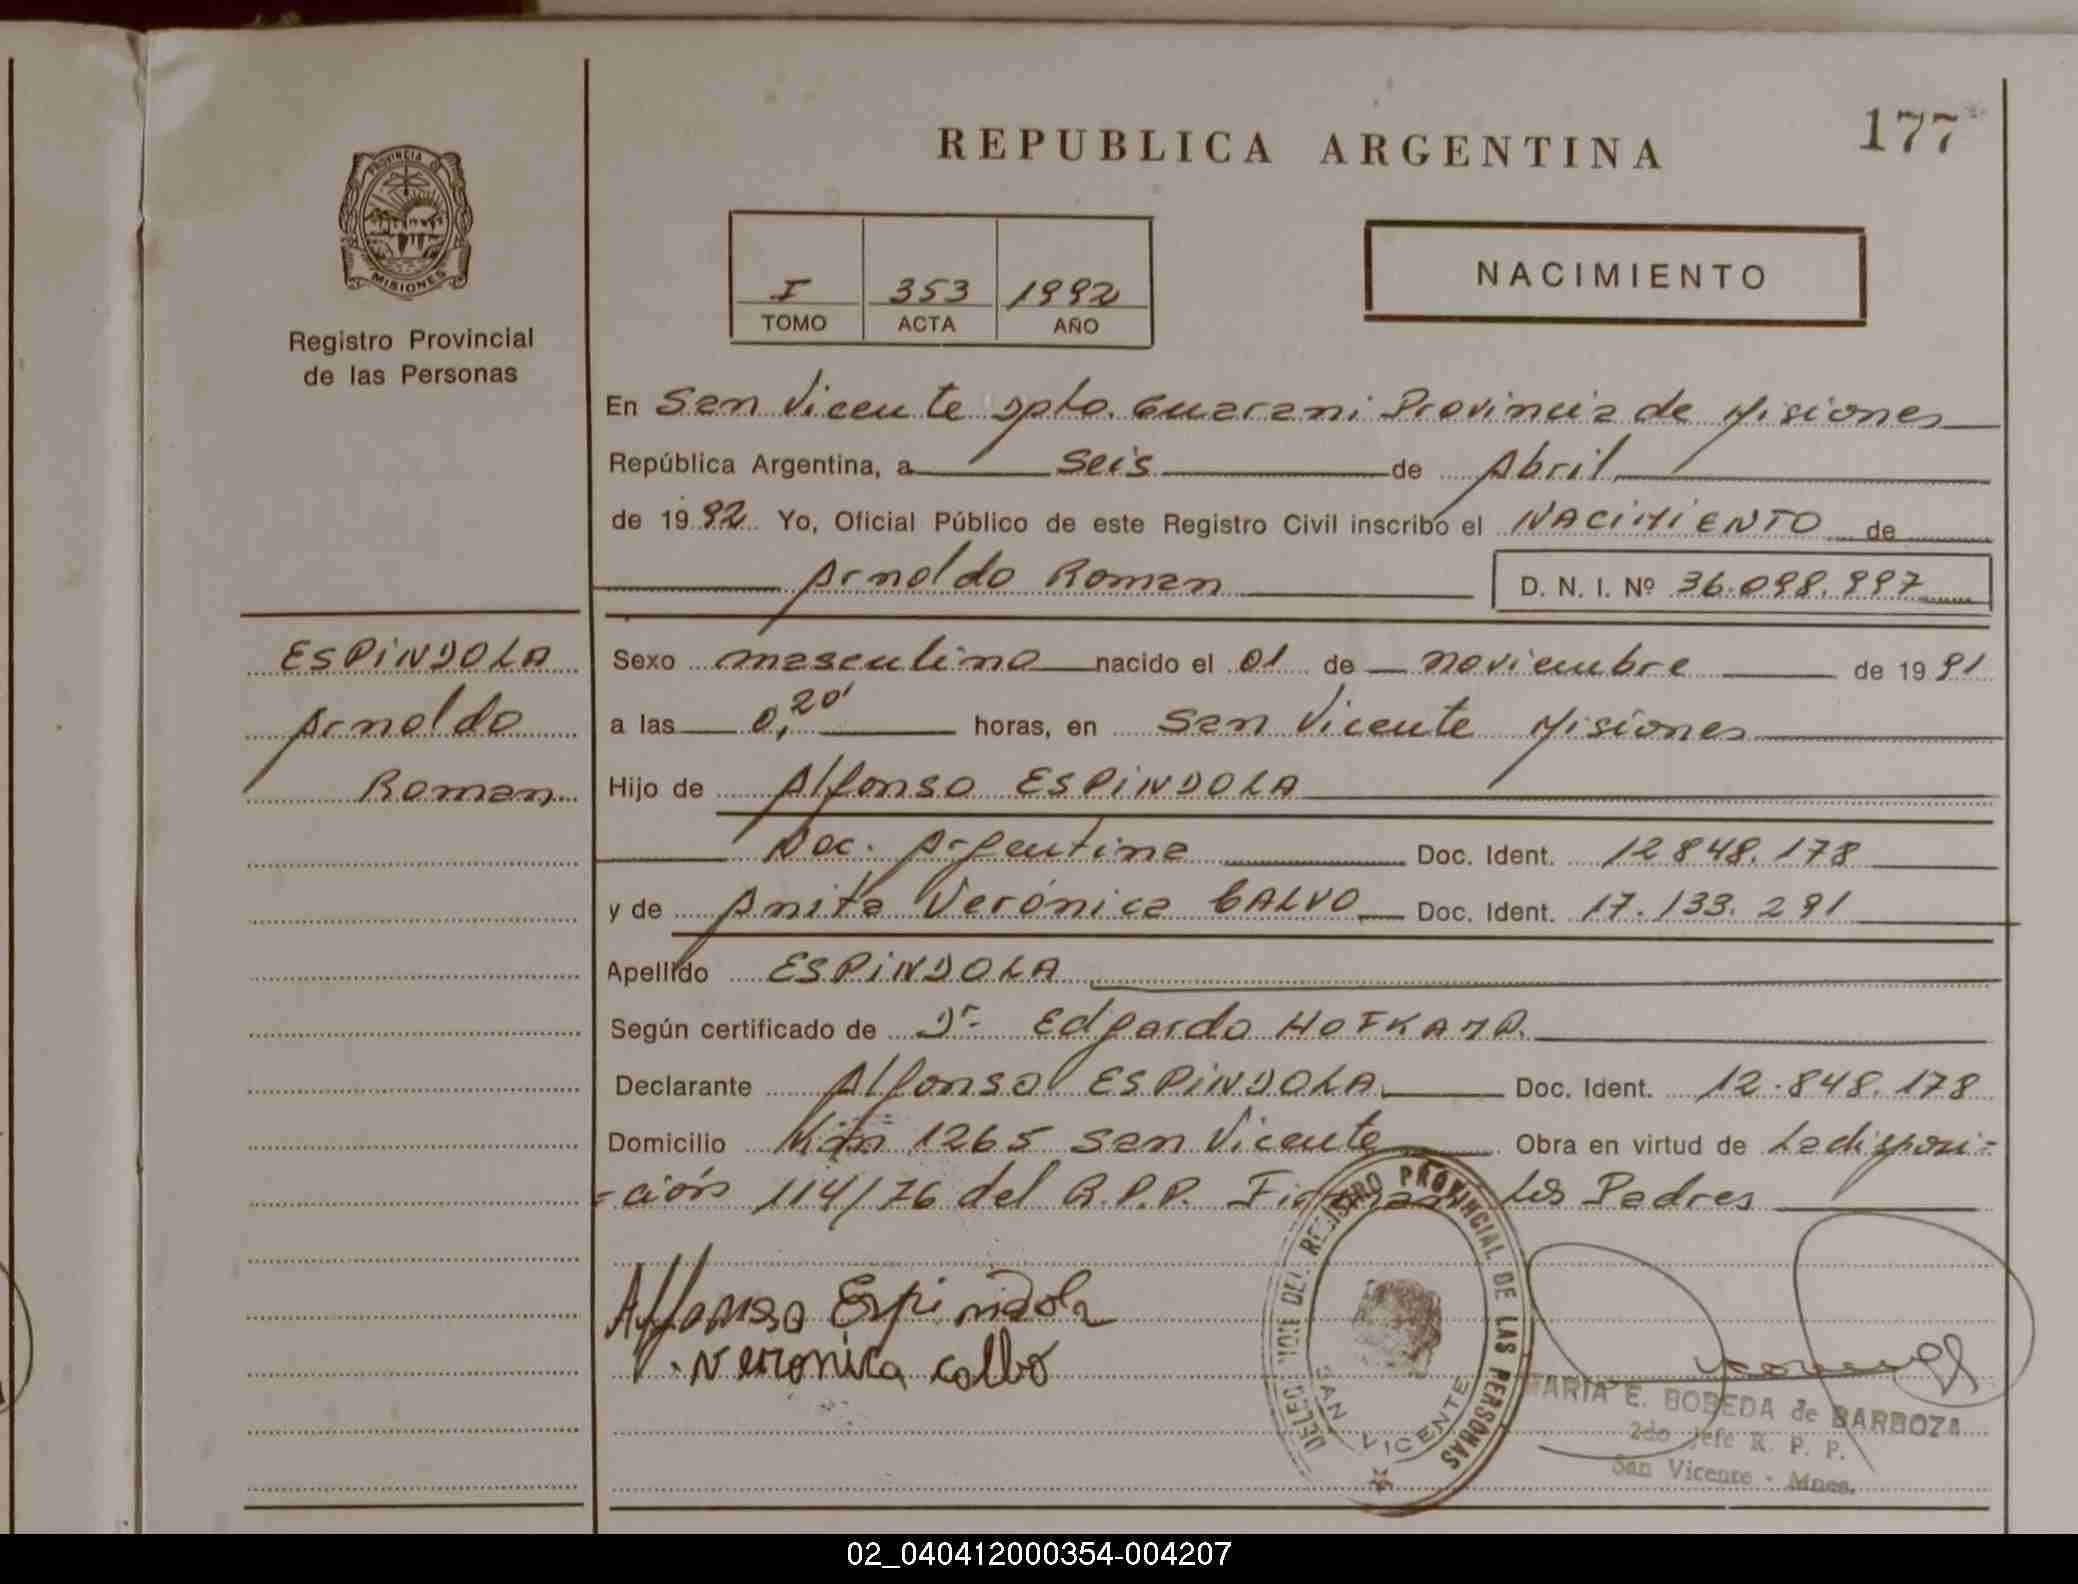 177
REPUBLICA ARGENTINA
PROVINCIA DE
MISIONES
Registro Provincial
de las Personas
I 353 1992
TOMO ACTA AÑO
NACIMIENTO
En San Vicente Dpto. Guarani Provincia de Misiones
República Argentina, a seis de Abril
de 1992 Yo, Oficial Público de este Registro Civil inscribo el NACIMIENTO de
Arnoldo Roman D. N. I. Nº 36.098.997
ESPINDOLA
Arnoldo
Roman
Sexo masculino nacido el 01 de noviembre de 1991
a las 0,20' horas, en San Vicente Misiones
Hijo de Alfonso ESPINDOLA
Nac. Argentina Doc. Ident. 12848.178
y de Anita Verónica CALVO Doc. Ident. 17.133.291
Apellido ESPINDOLA
Según certificado de Dr. Edgardo HOFKAMP.
Declarante Alfonso ESPINDOLA Doc. Ident. 12.848.178
Domicilio Km 1265 San Vicente Obra en virtud de La disposi=
=ción 114/76 del R.P.P. Firman Los Padres
Alfonso Espindola
V. Veronica Calbo
DELEGACION DEL REGISTRO PROVINCIAL DE LAS PERSONAS
SAN VICENTE
MARIA E. BOBEDA de BARBOZA
2do Jefe R. P. P.
San Vicente - Mnes.
02_040412000354-004207